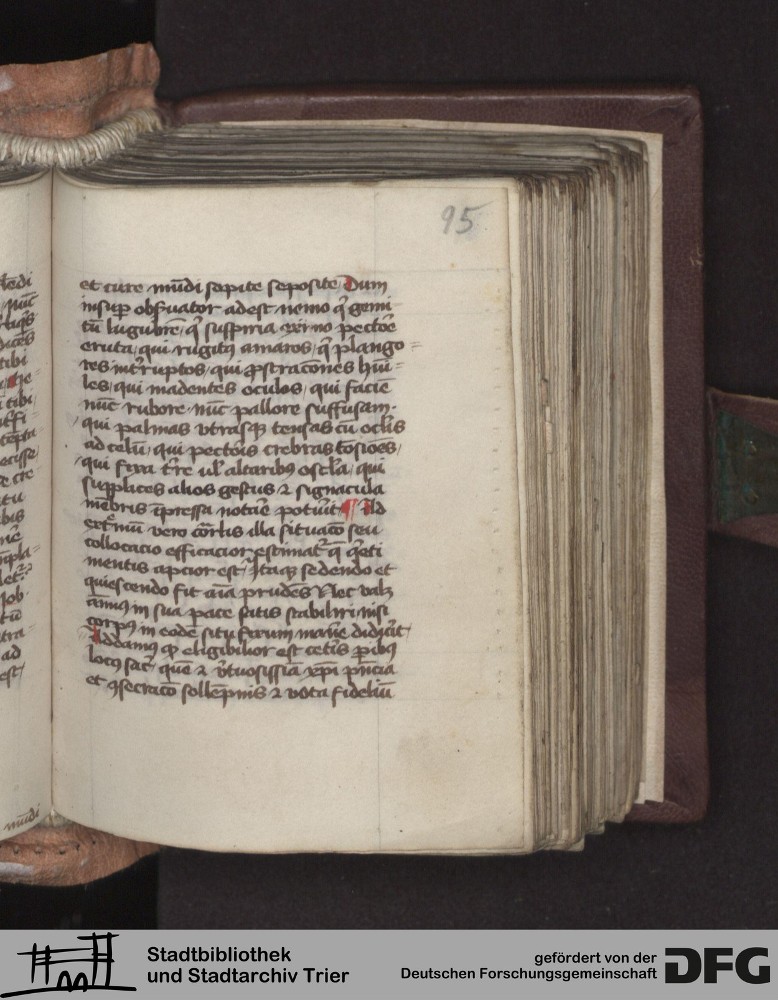 95
et cure mūdi sopite seposite Dum
insup obſuator adest nemo q̄ gemi
tū lugubrē, q̄ suspiria ex imo pectore
eruta, qui rugitꝰ amaros, q̄ plango=
res int'ruptos, qui ꝓstracōnes hūi=
les, qui madentes oculos, qui faciē
nūc rubore nūc pallore suffusam.
qui palmas vtrasqꝫ tensas cū oclīs
ad celū, qui pectoris crebras tōsiōes,
qui fixa t're ul' altaribꝰ oscl'a, qui
supplices alios gestus ⁊ signacula
mēbris īpressa notare potuīt ¶ Ad
ext'mū vero corꝑis illa situacō seu
collocacio efficacior estimat' q̄ q̄eti
mentis apcior est, Itaqꝫ sedendo et
quiescendo fit aīa prudēs Nec valꝫ
aīmꝰ in sua pace satis stabiliri nisi
corpꝰ in eodē situ firmum manē didicit
Addamꝰ qꝫ eligibilior est cetīs
locꝰ sac' quē ⁊ v'tuosissīa xpī pn̄cia
et ꝯsecracō sollēpnis ⁊ vōta fideliū
mūdi
Stadtbibliothek
und Stadtarchiv Trier
gefördert von der
Deutschen Forschungsgemeinschaft
DFG